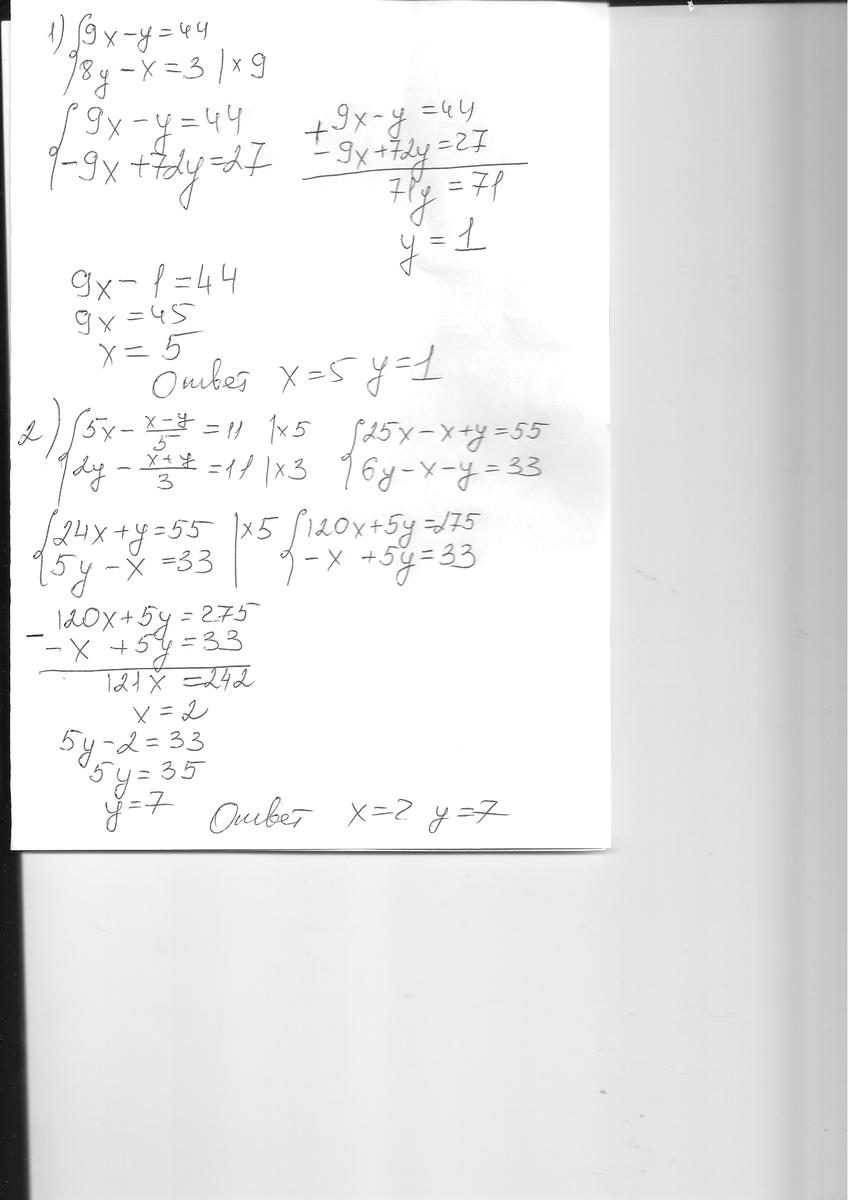 1) { 9x - y = 44
8y - x = 3 | × 9
{ 9x - y = 44
-9x + 72y = 27
+ 9x - y = 44
-9x + 72y = 27
71y = 71
y = 1
9x - 1 = 44
9x = 45
x = 5
Ответ x = 5 y = 1
2) { 5x - (x-y)/5 = 11 | × 5 { 25x - x + y = 55
2y - (x+y)/3 = 11 | × 3 6y - x - y = 33
{ 24x + y = 55 | × 5 { 120x + 5y = 275
5y - x = 33 | -x + 5y = 33
- 120x + 5y = 275
-x + 5y = 33
121x = 242
x = 2
5y - 2 = 33
5y = 35
y = 7
Ответ x = 2 y = 7